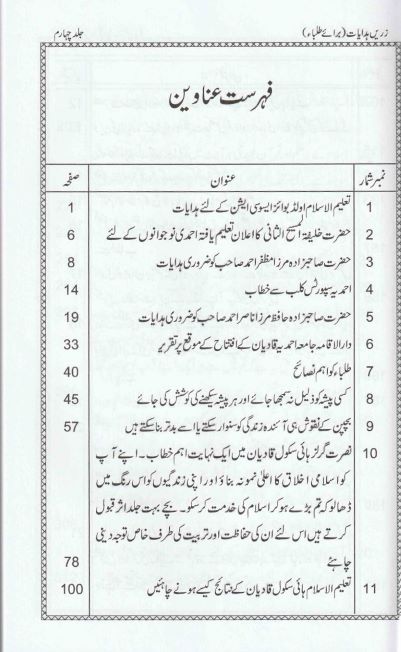 زریں ہدایات (برائے طلباء) جلد چہارم
فہرست عناوین
نمبر شمار عنوان صفحہ
1 تعلیم الاسلام اولڈ بوائز ایسوسی ایشن کے لئے ہدایات 1
2 حضرت خلیفۃ المسیح الثانی کا اعلان تعلیم یافتہ احمدی نوجوانوں کے لئے 6
3 حضرت صاحبزادہ مرزا مظفر احمد صاحب کو ضروری ہدایات 8
4 احمدیہ سپورٹس کلب سے خطاب 14
5 حضرت صاحبزادہ حافظ مرزا ناصر احمد صاحب کو ضروری ہدایات 19
6 دارالاقامہ جامعہ احمدیہ قادیان کے افتتاح کے موقع پر تقریر 33
7 طلباء کو اہم نصائح 40
8 کسی پیشہ کو ذلیل نہ سمجھا جائے اور ہر پیشہ سیکھنے کی کوشش کی جائے 45
9 بچپن کے نقوش ہی آئندہ زندگی کو سنوار سکتے یا اسے بدتر بنا سکتے ہیں 57
10 نصرت گرلز ہائی سکول قادیان میں ایک نہایت اہم خطاب۔ اپنے آپ
کو اسلامی اخلاق کا اعلیٰ نمونہ بناؤ اور اپنی زندگیوں کو اس رنگ میں
ڈھالو کہ تم بڑے ہو کر اسلام کی خدمت کر سکو۔ بچے بہت جلد اثر قبول
کرتے ہیں اس لئے ان کی حفاظت اور تربیت کی طرف خاص توجہ دینی
چاہئے 78
11 تعلیم الاسلام ہائی سکول قادیان کے نتائج کیسے ہونے چاہئیں 100